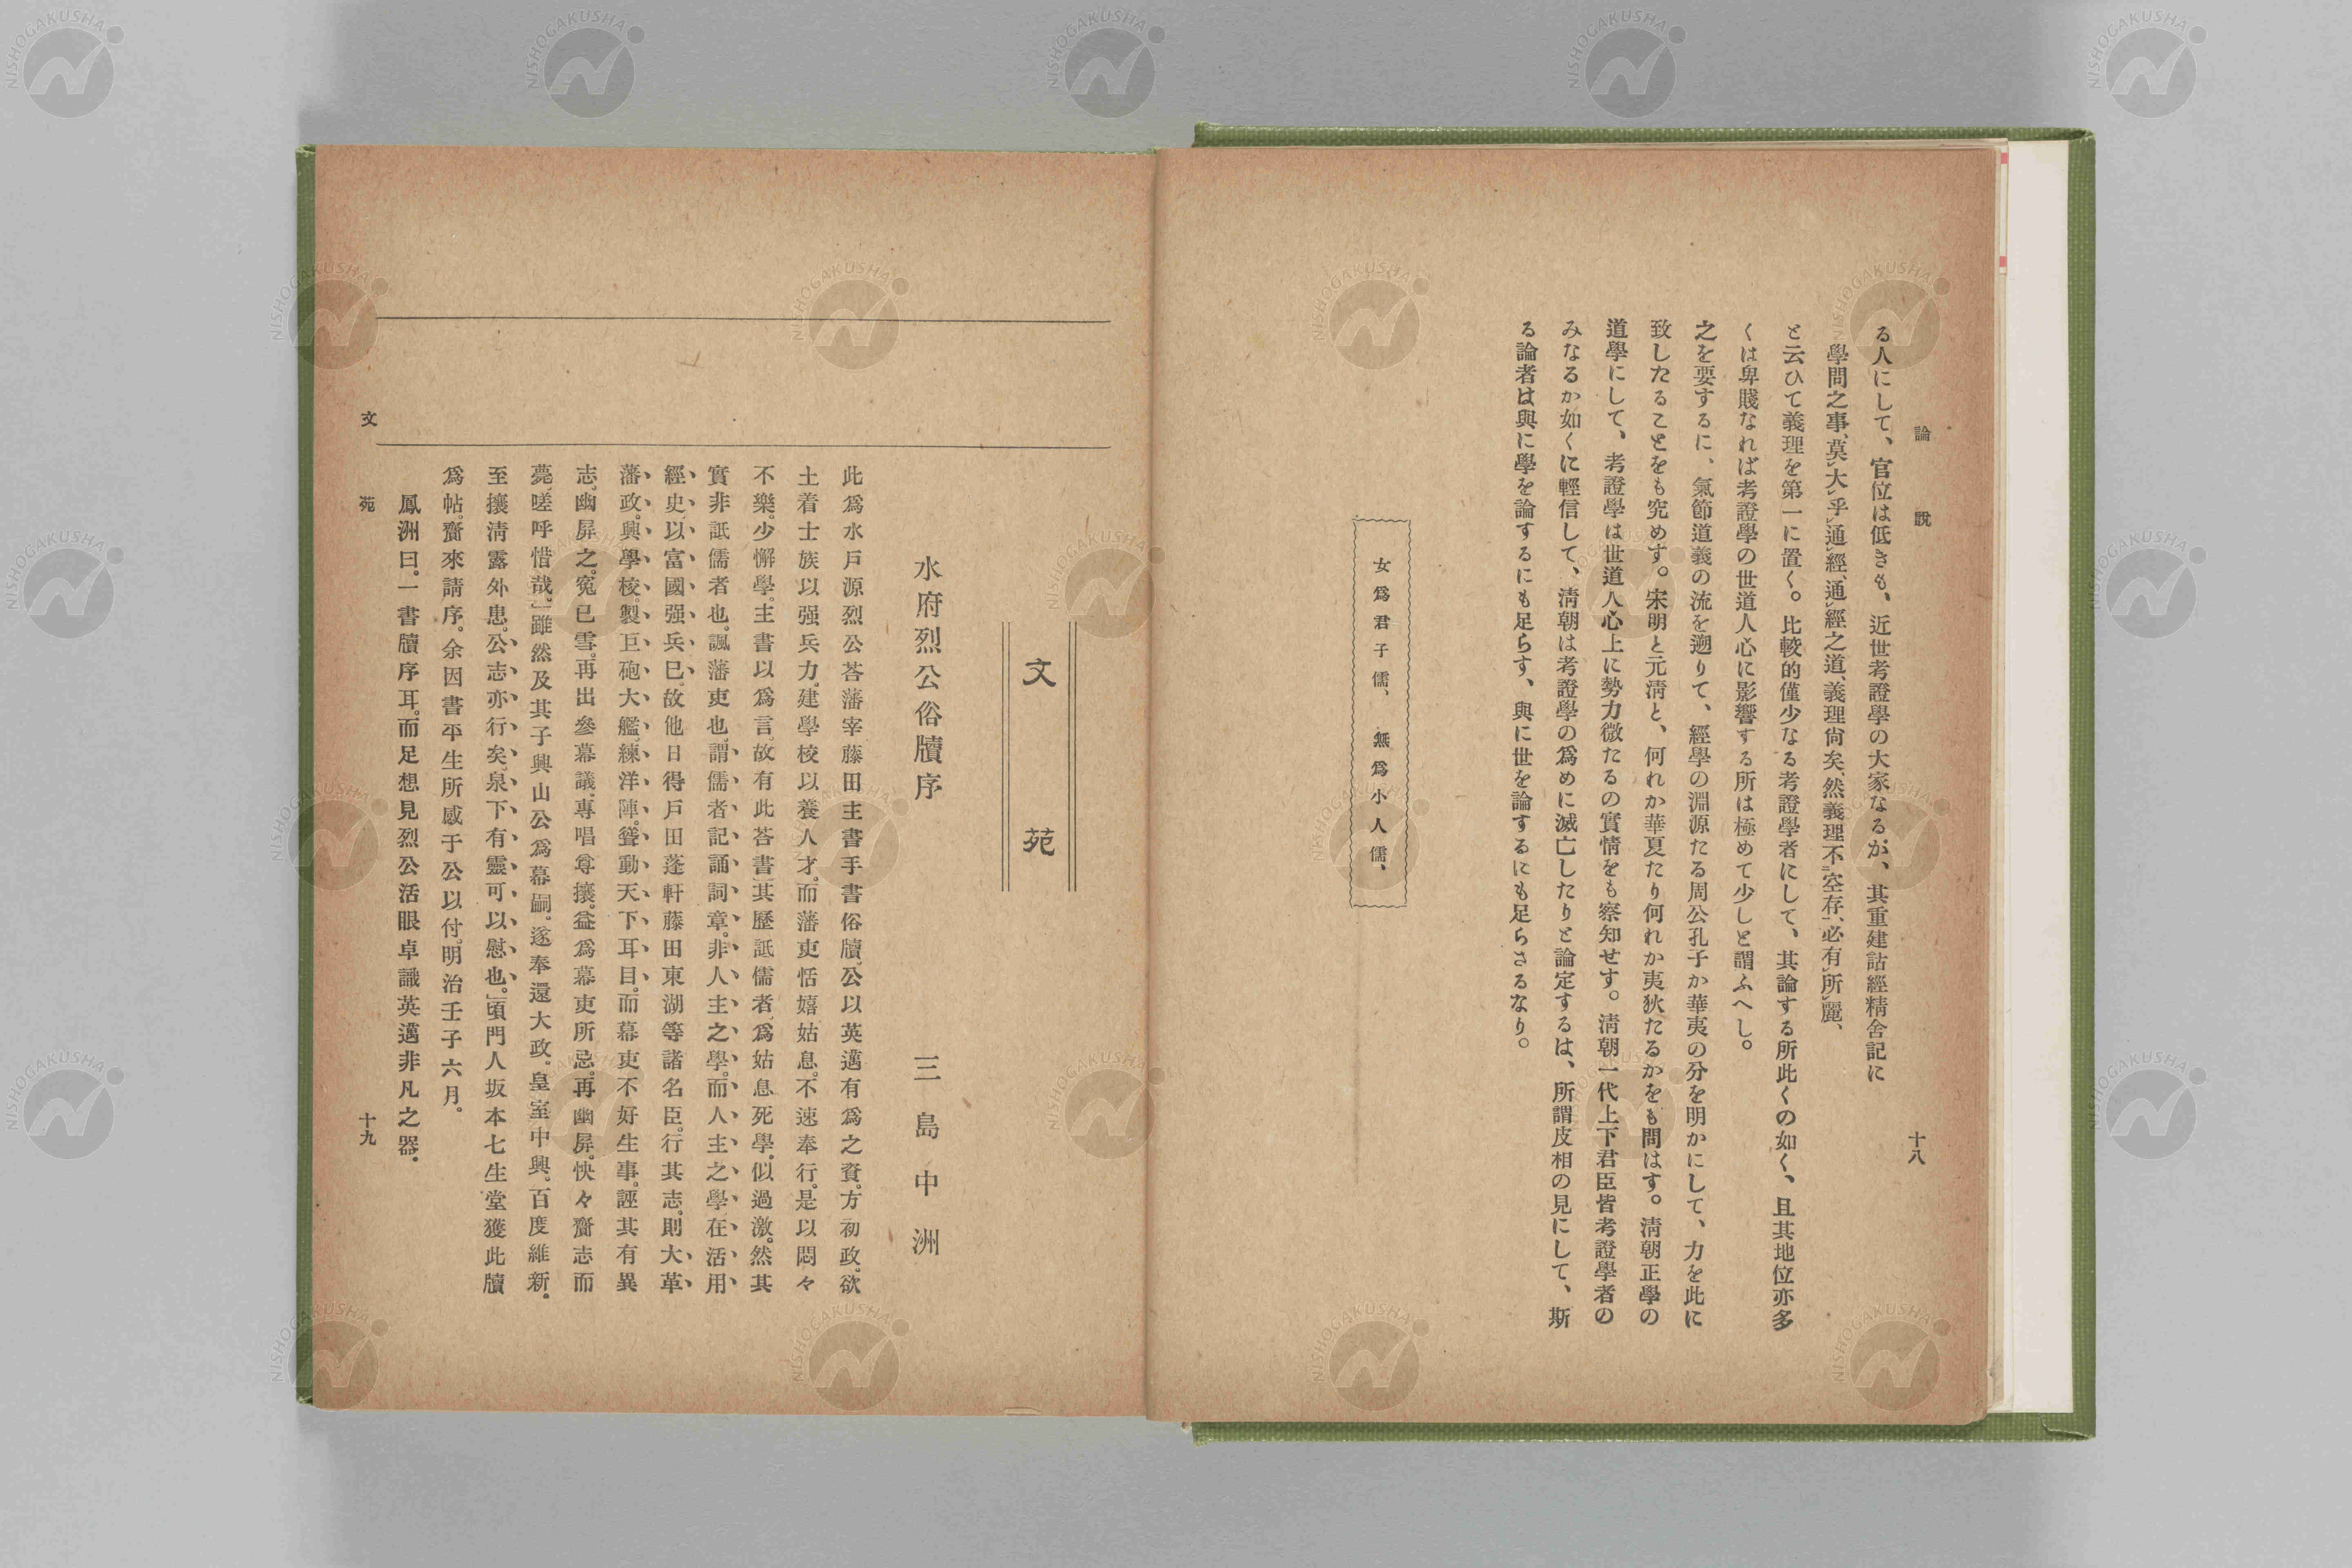 論說
十八
る人にして、官位は低きも、近世考證學の大家なるが、其重建詁經精舍記に
學問之事、莫大乎通經、通經之道、義理尙矣、然義理不空存、必有所麗、
と云ひて義理を第一に置く。比較的僅少なる考證學者にして、其論する所此くの如く、且其地位亦多
くは卑賤なれば考證學の世道人心に影響する所は極めて少しと謂ふへし。
之を要するに、氣節道義の流を遡りて、經學の淵源たる周公孔子か華夷の分を明かにして、力を此に
致したることをも究めす。宋明と元淸と、何れか華夏たり何れか夷狄たるかをも問はす。淸朝正學の
道學にして、考證學は世道人心上に勢力微たるの實情をも察知せす。淸朝一代上下君臣皆考證學者の
みなるか如くに輕信して、淸朝は考證學の爲めに滅亡したりと論定するは、所謂皮相の見にして、斯
る論者は與に學を論するにも足らす、與に世を論するにも足らさるなり。
女爲君子儒、無爲小人儒、
文苑
水府烈公俗牘序
三島中洲
此爲水戶源烈公荅藩宰藤田主書手書俗牘。公以英邁有爲之資。方初政。欲
土着士族以强兵力。建學校以養人才。而藩吏恬嬉姑息。不速奉行。是以悶々
不樂。少懈學。主書以爲言。故有此荅書。其歷詆儒者、爲姑息死學。似過激。然其
實非詆儒者也。諷藩吏也。謂儒者記誦詞章。非人主之學。而人主之學在活用
經史。以富國强兵已。故他日得戶田蓬軒藤田東湖等諸名臣。行其志。則大革
藩政。興學校。製巨砲大艦。練洋陣。聳動天下耳目。而幕吏不好生事。誣其有異
志。幽屏之。寃已雪。再出參幕議。專唱尊攘。益爲幕吏所忌。再幽屏。怏々齎志而
薨。嗟呼惜哉。」雖然及其子興山公爲幕嗣。遂奉還大政。皇室中興。百度維新。
至攘淸露外患。公志亦行矣。泉下有靈可以慰也。」頃門人坂本七生堂獲此牘
爲帖。齎來請序。余因書平生所感于公以付。明治壬子六月。
鳳洲曰。一書牘序耳。而足想見烈公活眼卓識英邁非凡之器。
文苑
十九
NISHOGAKUSHA